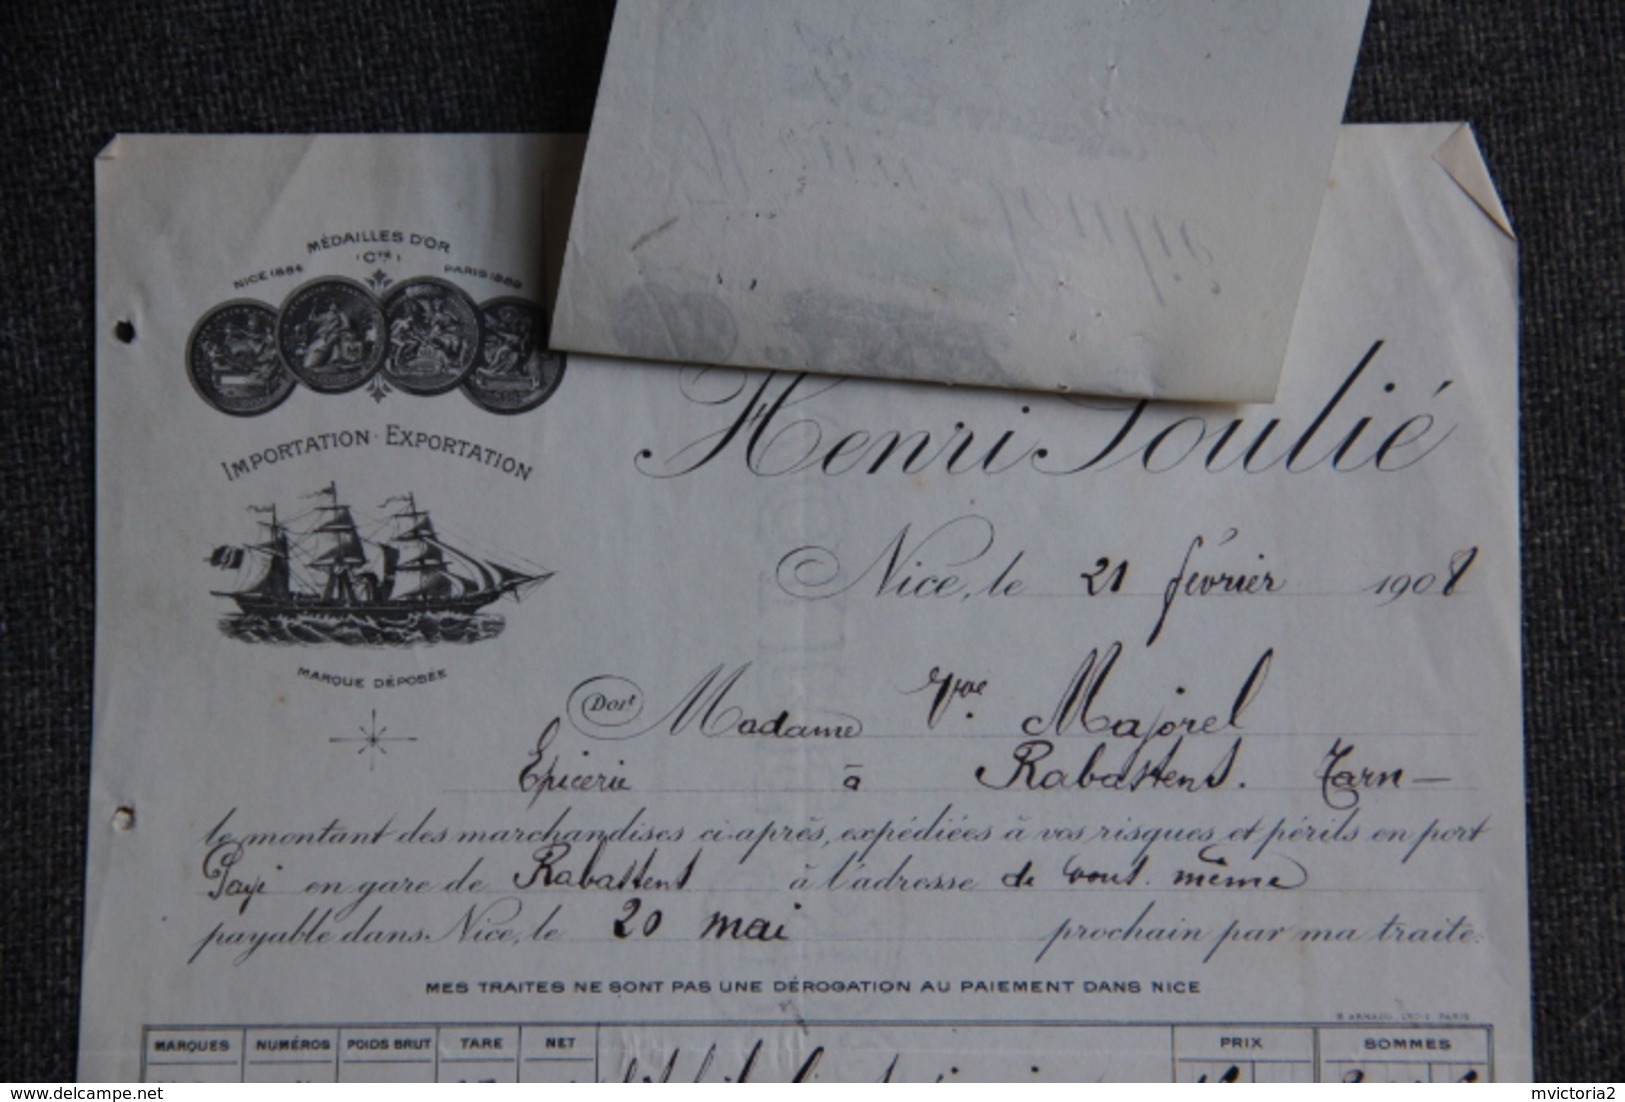 MÉDAILLES D'OR
NICE 1884 (Cte) PARIS 1889
IMPORTATION · EXPORTATION
MARQUE DÉPOSÉE
Henri Soulié
Nice, le 21 février 1908
Doit Madame Vve Majorel
Epicerie à Rabastens. Tarn
le montant des marchandises ci-après, expédiées à vos risques et périls en port
Payé en gare de Rabastens à l'adresse de vous même
payable dans Nice, le 20 mai prochain par ma traite.
MES TRAITES NE SONT PAS UNE DÉROGATION AU PAIEMENT DANS NICE
MARQUES NUMÉROS POIDS BRUT TARE NET PRIX SOMMES
http://www.delcampe.net
mvictoria2